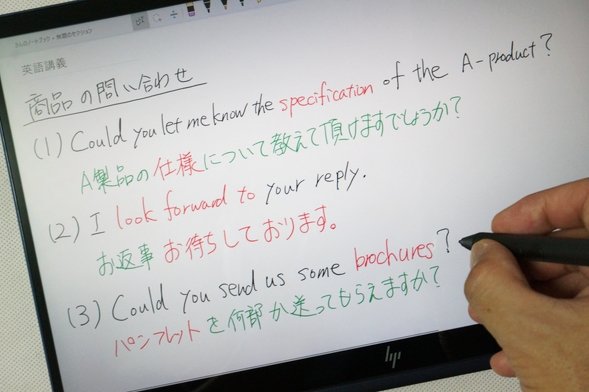 さんのノートブック » 無題のセクション
英語講義
商品の問い合わせ
(1) Could you let me know the specification of the A-product?
A製品の仕様について教えて頂けますでしょうか?
(2) I look forward to your reply.
お返事お待ちしております。
(3) Could you send us some brochures?
パンフレットを何部か送ってもらえますか?
hp